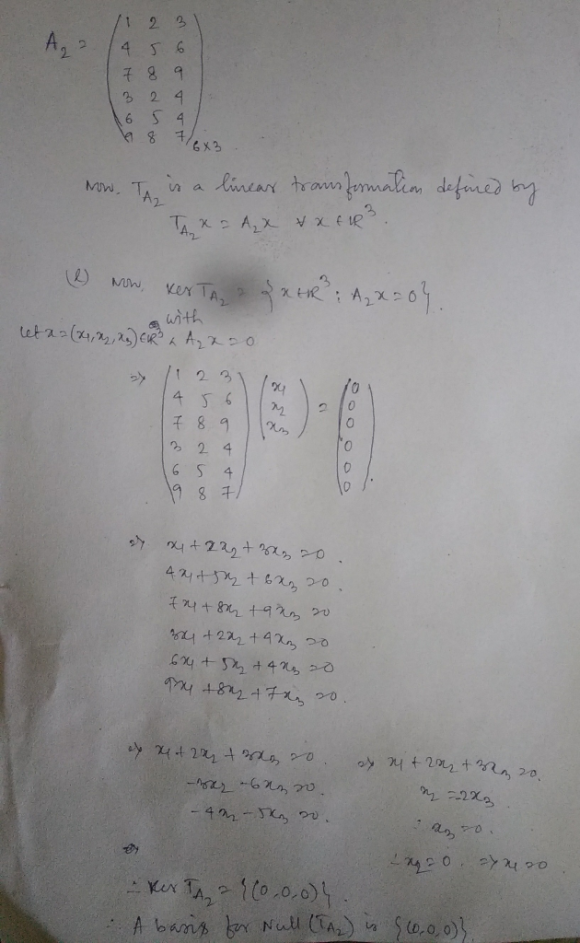 A₂ = ( 1 2 3
4 5 6
7 8 9
3 2 4
6 5 4
9 8 7 )6×3.
Now. T_A₂ is a linear transformation defined by
T_A₂ x = A₂x ∀ x ∈ ℝ³.
(2) Now, Ker T_A₂ = { x ∈ ℝ³ : A₂x = 0 }.
with
Let x = (x₁, x₂, x₃) ∈ ℝ³ & A₂x = 0
⇒ ( 1 2 3
4 5 6
7 8 9
3 2 4
6 5 4
9 8 7 ) ( x₁ x₂ x₃ ) = ( 0 0 0 0 0 0 ).
⇒ x₁ + 2x₂ + 3x₃ = 0.
4x₁ + 5x₂ + 6x₃ = 0.
7x₁ + 8x₂ + 9x₃ = 0
3x₁ + 2x₂ + 4x₃ = 0
6x₁ + 5x₂ + 4x₃ = 0
9x₁ + 8x₂ + 7x₃ = 0.
⇒ x₁ + 2x₂ + 3x₃ = 0. ⇒ x₁ + 2x₂ + 3x₃ = 0.
-3x₂ - 6x₃ = 0. x₂ = -2x₃.
-4x₂ - 5x₃ = 0. ∴ x₃ = 0.
∴ x₂ = 0. ⇒ x₁ = 0
∴ Ker T_A₂ = {(0,0,0)}.
∴ A basis for Null (T_A₂) is {(0,0,0)}.